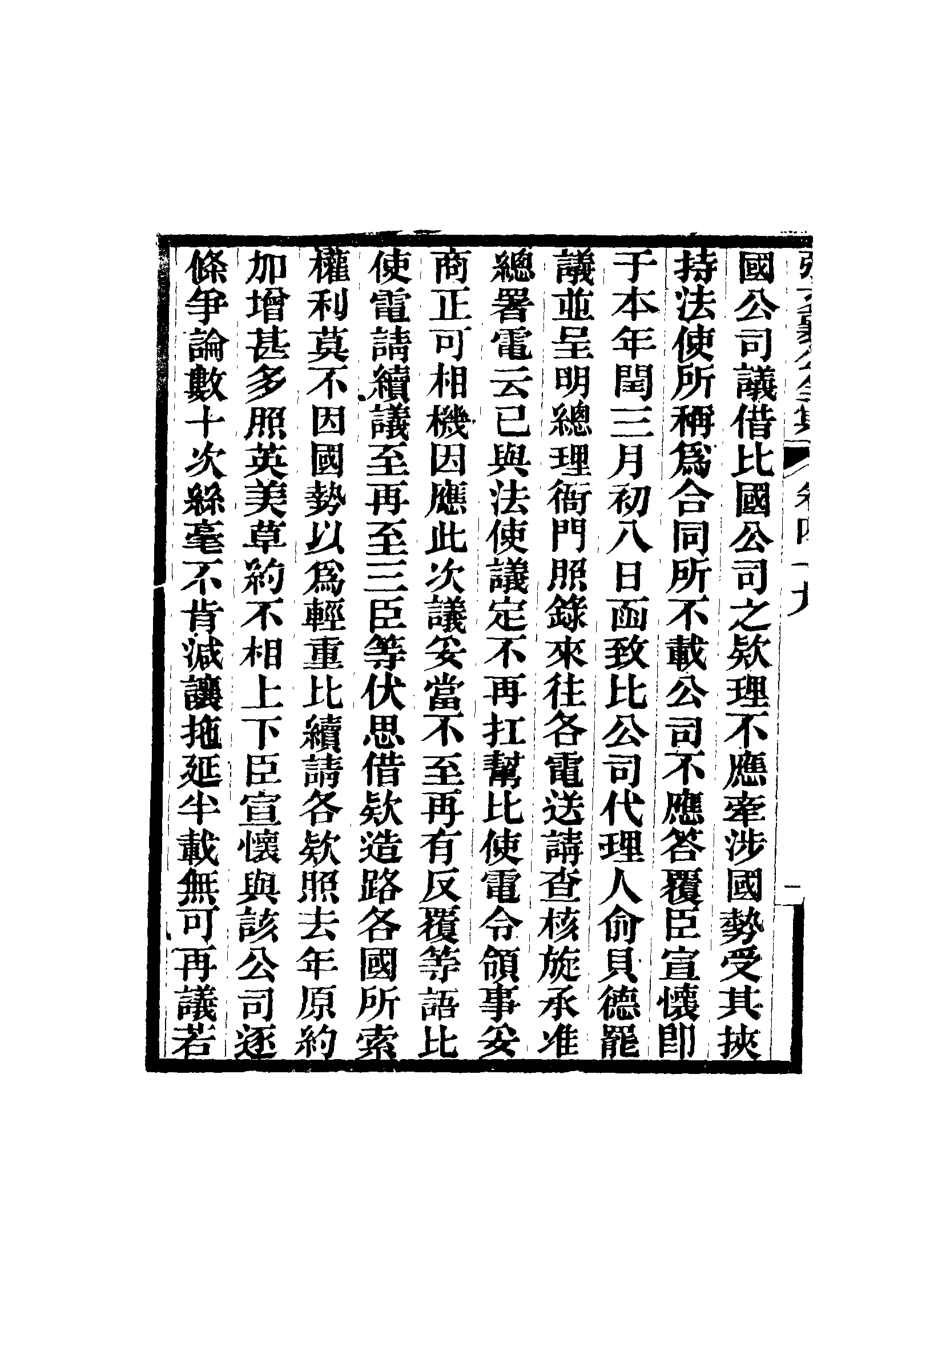 國公司議借比國公司之欵理不應牽涉國勢受其挾
持法使所稱爲合同所不載公司不應答覆臣宣懷卽
于本年閏三月初八日函致比公司代理人俞貝德罷
議並呈明總理衙門照錄來往各電送請查核旋承准
總署電云已與法使議定不再扛幫比使電令領事妥
商正可相機因應此次議妥當不至再有反覆等語比
使電請續議至再至三臣等伏思借欵造路各國所索
權利莫不因國勢以爲輕重比續請各欵照去年原約
加增甚多照英美草約不相上下臣宣懷與該公司逐
條爭論數十次絲毫不肯減讓拖延半載無可再議若